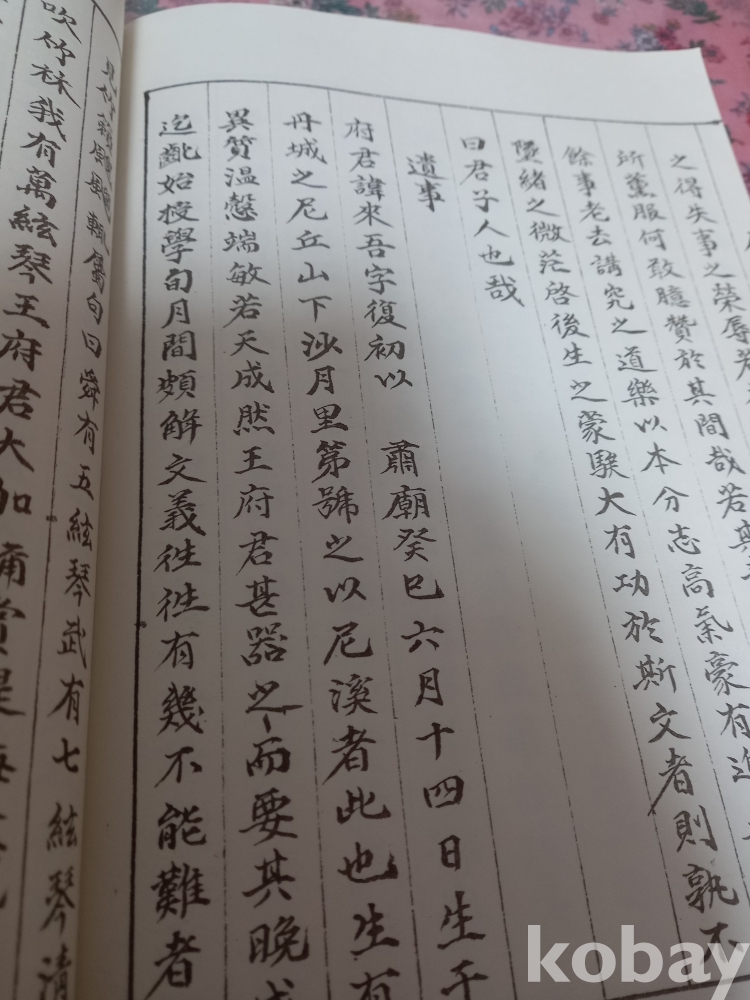 之得失事之榮辱若
所薰服何敢臆贊於其間哉若
餘事老去講究之道樂以本分志高氣豪有
墜緒之微茫啓後生之蒙騃大有功於斯文者則孰不
曰君子人也哉
遺事
府君諱來吾字復初以 肅廟癸巳六月十四日生于
丹城之尼丘山下沙月里第號之以尼溪者此也生有
異質溫慤端敏若天成然王府君甚器之而要其晚
迄齔始授學旬月間頗解文義徃徃有幾不能難者
風 輒屬句曰舜有五絃琴武有七絃琴清
吹竹林我有萬絃琴王府君大加
kobay